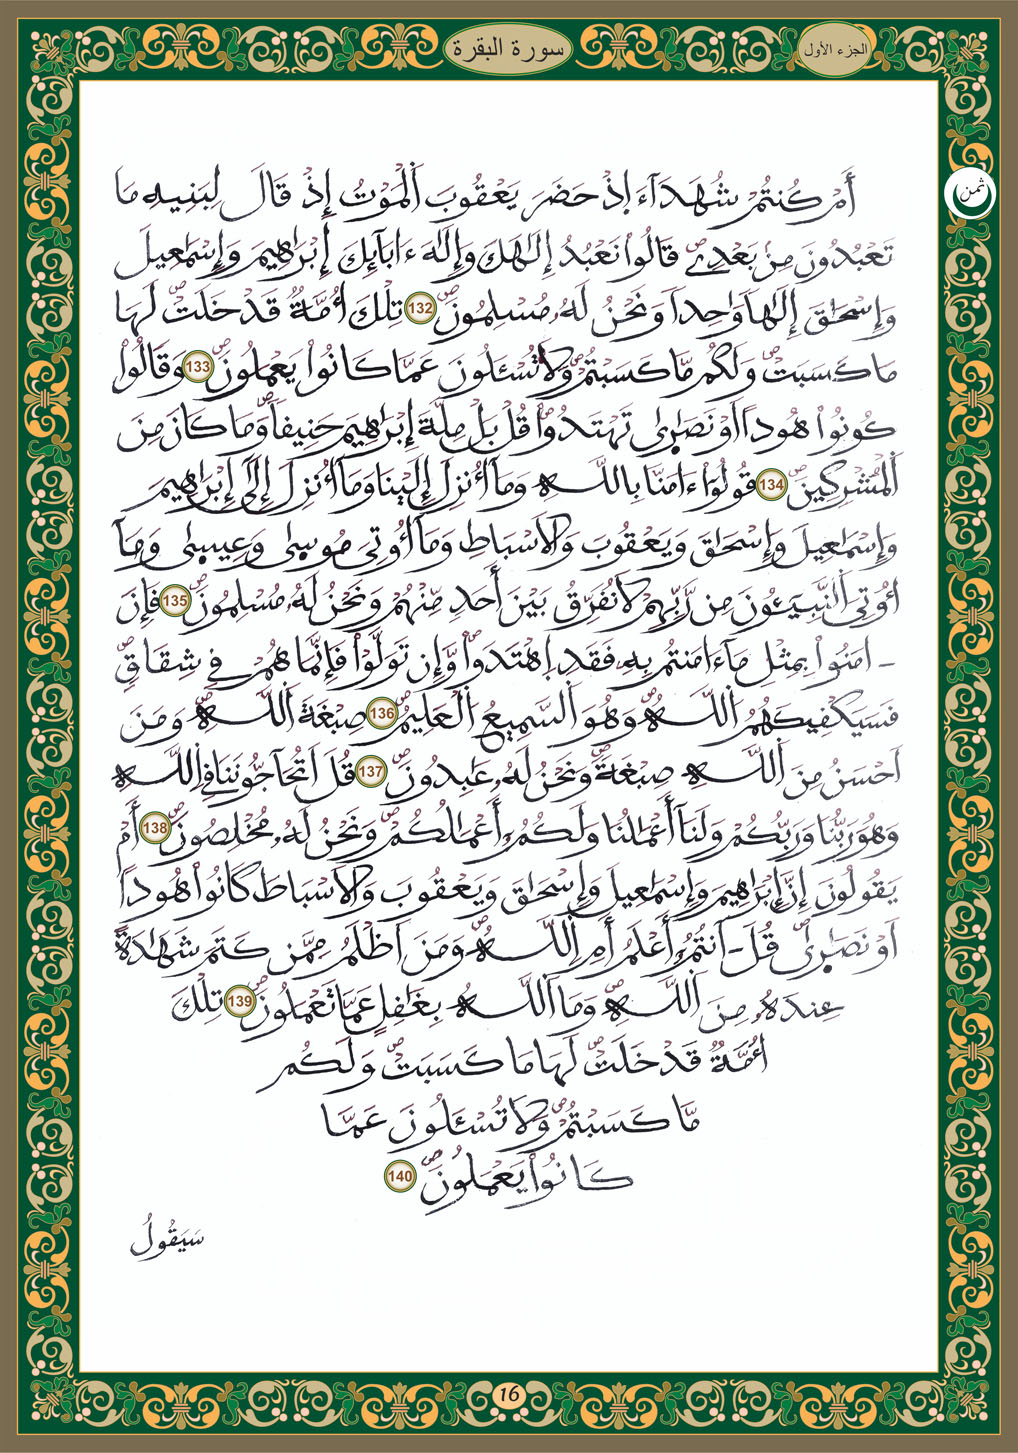 الجزء الأول
سورة البقرة
ثمن
أَمْ كُنتُمْ شُهَدَآءَ اِذْ حَضَرَ يَعْقُوبَ اَ۬لْمَوْتُ إِذْ قَالَ لِبَنِيهِ مَا
تَعْبُدُونَ مِنۢ بَعْدِےۖ قَالُواْ نَعْبُدُ إِلَٰهَكَ وَإِلَٰهَ ءَابَآئِكَ إِبْرَٰهِيمَ وَإِسْمَٰعِيلَ
وَإِسْحَٰقَ إِلَٰهاٗ وَٰحِداٗ وَنَحْنُ لَهُۥ مُسْلِمُونَۖ 132 تِلْكَ أُمَّةٞ قَدْ خَلَتْۖ لَهَا
مَا كَسَبَتْۖ وَلَكُم مَّا كَسَبْتُمْۖ وَلَا تُسْـَٔلُونَ عَمَّا كَانُواْ يَعْمَلُونَۖ 133 وَقَالُواْ
كُونُواْ هُوداً اَوْ نَصَٰر۪يٰ تَهْتَدُواْۖ قُلْ بَلْ مِلَّةَ إِبْرَٰهِيمَ حَنِيفاٗۖ وَمَا كَانَ مِنَ
اَ۬لْمُشْرِكِينَۖ 134 قُولُوٓاْ ءَامَنَّا بِاللَّهِ وَمَآ أُنزِلَ إِلَيْنَا وَمَآ أُنزِلَ إِلَيٰٓ إِبْرَٰهِيمَ
وَإِسْمَٰعِيلَ وَإِسْحَٰقَ وَيَعْقُوبَ وَالَاسْبَاطِ وَمَآ أُوتِيَ مُوس۪يٰ وَعِيس۪يٰ وَمَآ
أُوتِيَ اَ۬لنَّبِيٓـُٔونَ مِن رَّبِّهِمْ لَا نُفَرِّقُ بَيْنَ أَحَدٖ مِّنْهُمْ وَنَحْنُ لَهُۥ مُسْلِمُونَۖ 135 فَإِنَ
ـ اٰمَنُواْ بِمِثْلِ مَآ ءَامَنتُم بِهِۦ فَقَدِ اِ۪هْتَدَواْۖ وَّإِن تَوَلَّوْاْ فَإِنَّمَا هُمْ فِے شِقَاقٖۖ
فَسَيَكْفِيكَهُمُ اُ۬للَّهُۖ وَهُوَ اَ۬لسَّمِيعُ اُ۬لْعَلِيمُۖ 136 صِبْغَةَ اَ۬للَّهِۖ وَمَنَ
اَحْسَنُ مِنَ اَ۬للَّهِ صِبْغَةٗۖ وَنَحْنُ لَهُۥ عَٰبِدُونَۖ 137 قُلَ اَتُحَآجُّونَنَا فِے اِ۬للَّهِ
وَهُوَ رَبُّنَا وَرَبُّكُمْ وَلَنَآ أَعْمَٰلُنَا وَلَكُمُۥٓ أَعْمَٰلُكُمْۖ وَنَحْنُ لَهُۥ مُخْلِصُونَۖ 138 أَمْ
يَقُولُونَ إِنَّ إِبْرَٰهِيمَ وَإِسْمَٰعِيلَ وَإِسْحَٰقَ وَيَعْقُوبَ وَالَاسْبَاطَ كَانُواْ هُوداً
اَوْ نَصَٰر۪يٰۖ قُلَ ـ آنتُمُۥٓ أَعْلَمُ أَمِ اِ۬للَّهُۖ وَمَنَ اَظْلَمُ مِمَّن كَتَمَ شَهَٰدَةً
عِندَهُۥ مِنَ اَ۬للَّهِۖ وَمَا اَ۬للَّهُ بِغَٰفِلٍ عَمَّا تَعْمَلُونَۖ 139 تِلْكَ
أُمَّةٞ قَدْ خَلَتْۖ لَهَا مَا كَسَبَتْۖ وَلَكُم
مَّا كَسَبْتُمْۖ وَلَا تُسْـَٔلُونَ عَمَّا
كَانُواْ يَعْمَلُونَۖ 140
سَيَقُولُ
16